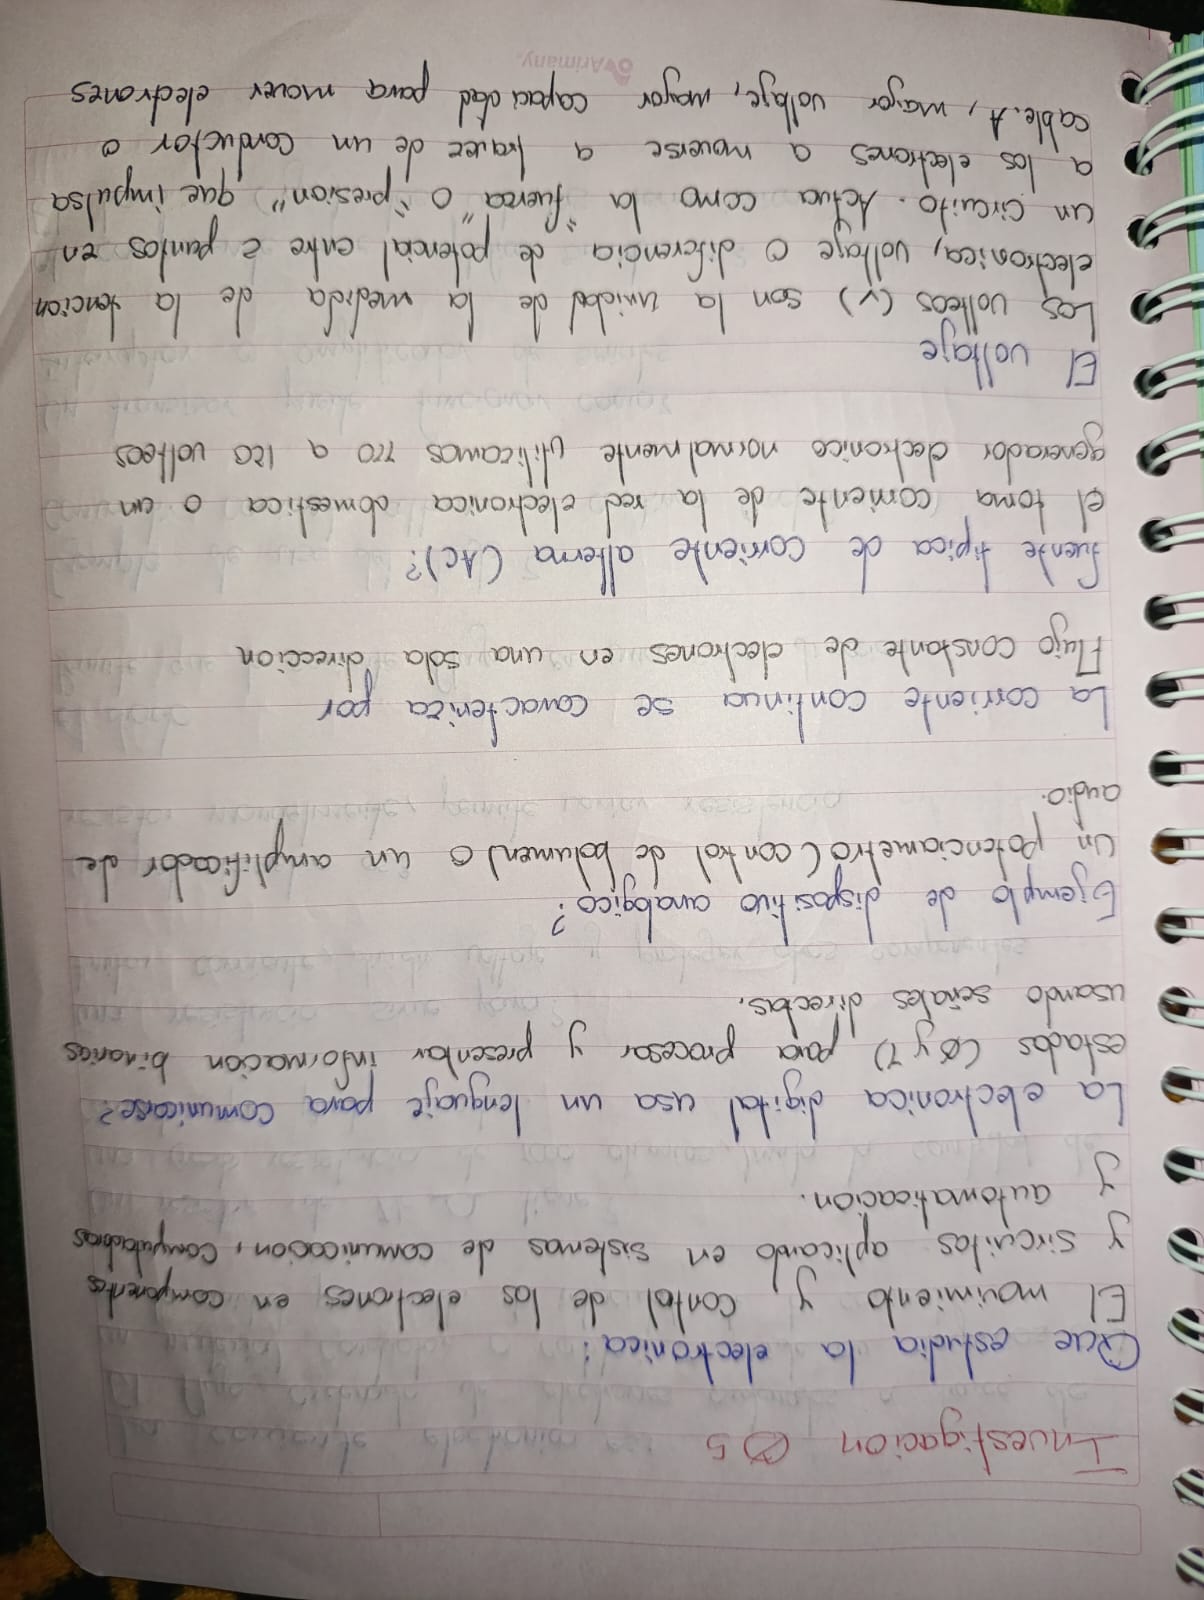 Investigacion 5
Que estudia la electronica:
El movimiento y contol de los electrones en componentes
y sircuitos aplicando en sistemas de comunicacion, Computadoras
y automaticacion.
La electronica digital usa un lenguaje para comunicarse?
estados (0 y 1) para procesar y presentar informacion binarias
usando señales directas.
Ejemplo de dispositivo analogico?
Un potenciametro (control de bolumen) o un amplificador de
audio.
La corriente continua se caracteriza por
Flujo constante de electrones en una sola direccion
fuente tipica de corriente alterna (AC)?
el toma corriente de la red electronica domestica o un
generador electronico normalmente utilicamos 110 a 120 volteos
El voltaje
Los volteos (v) son la unidad de la medida de la tencion
electronica, voltaje o diferencia de potencial entre 2 puntos en
un circuito. Actua como la "fuerza" o "presion" que impulsa
a los electrones a moverse a travez de un conductor o
cable. A, mayor voltaje, mayor capacidad para mover electrones
Arimany.